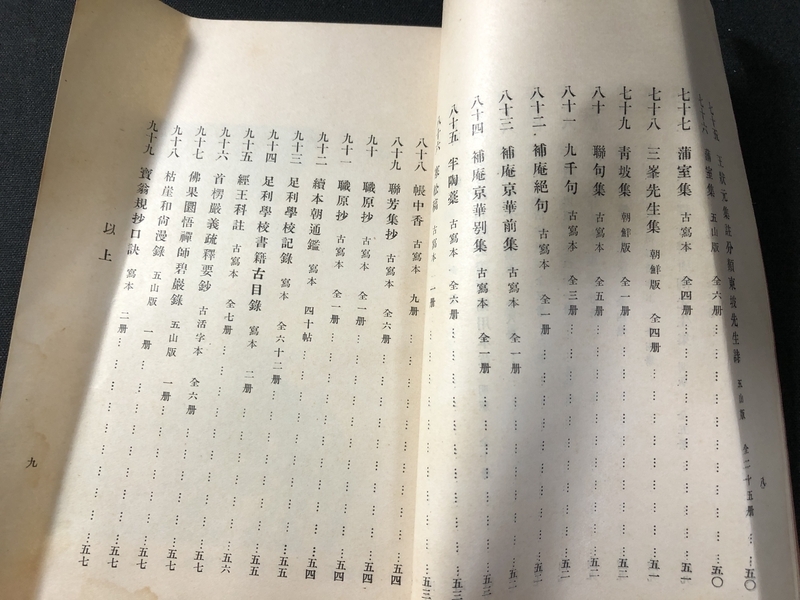 七十五 王狀元集註分類東坡先生詩 五山版 全二十五册 五〇
七十六 蒲室集 五山版 全六册 五〇
七十七 蒲室集 古寫本 全四册 五一
七十八 三峯先生集 朝鮮版 全四册 五一
七十九 靑坡集 朝鮮版 全一册 五二
八十 聯句集 古寫本 全五册 五二
八十一 九千句 古寫本 全三册 五二
八十二 補庵絕句 古寫本 全一册 五二
八十三 補庵京華前集 古寫本 全一册 五二
八十四 補庵京華別集 古寫本 全一册 五三
八十五 半陶藁 古寫本 全六册 五三
八十六 古寫本 一册 五三
八
八十八 帳中香 古寫本 九册 五四
八十九 聯芳集抄 古寫本 全六册 五四
九十 職原抄 古寫本 全一册 五四
九十一 職原抄 古寫本 全一册 五四
九十二 續本朝通鑑 寫本 四十帖 五四
九十三 足利學校記錄 寫本 全六十二册 五五
九十四 足利學校書籍古目錄 寫本 二册 五五
九十五 經王科註 古寫本 全七册 五六
九十六 首楞嚴義疏釋要鈔 古活字本 全六册 五七
九十七 佛果圜悟禪師碧巖錄 五山版 一册 五七
九十八 枯崖和尙漫錄 五山版 一册 五七
九十九 寶翁規抄口訣 寫本 二册 五七
以上
九